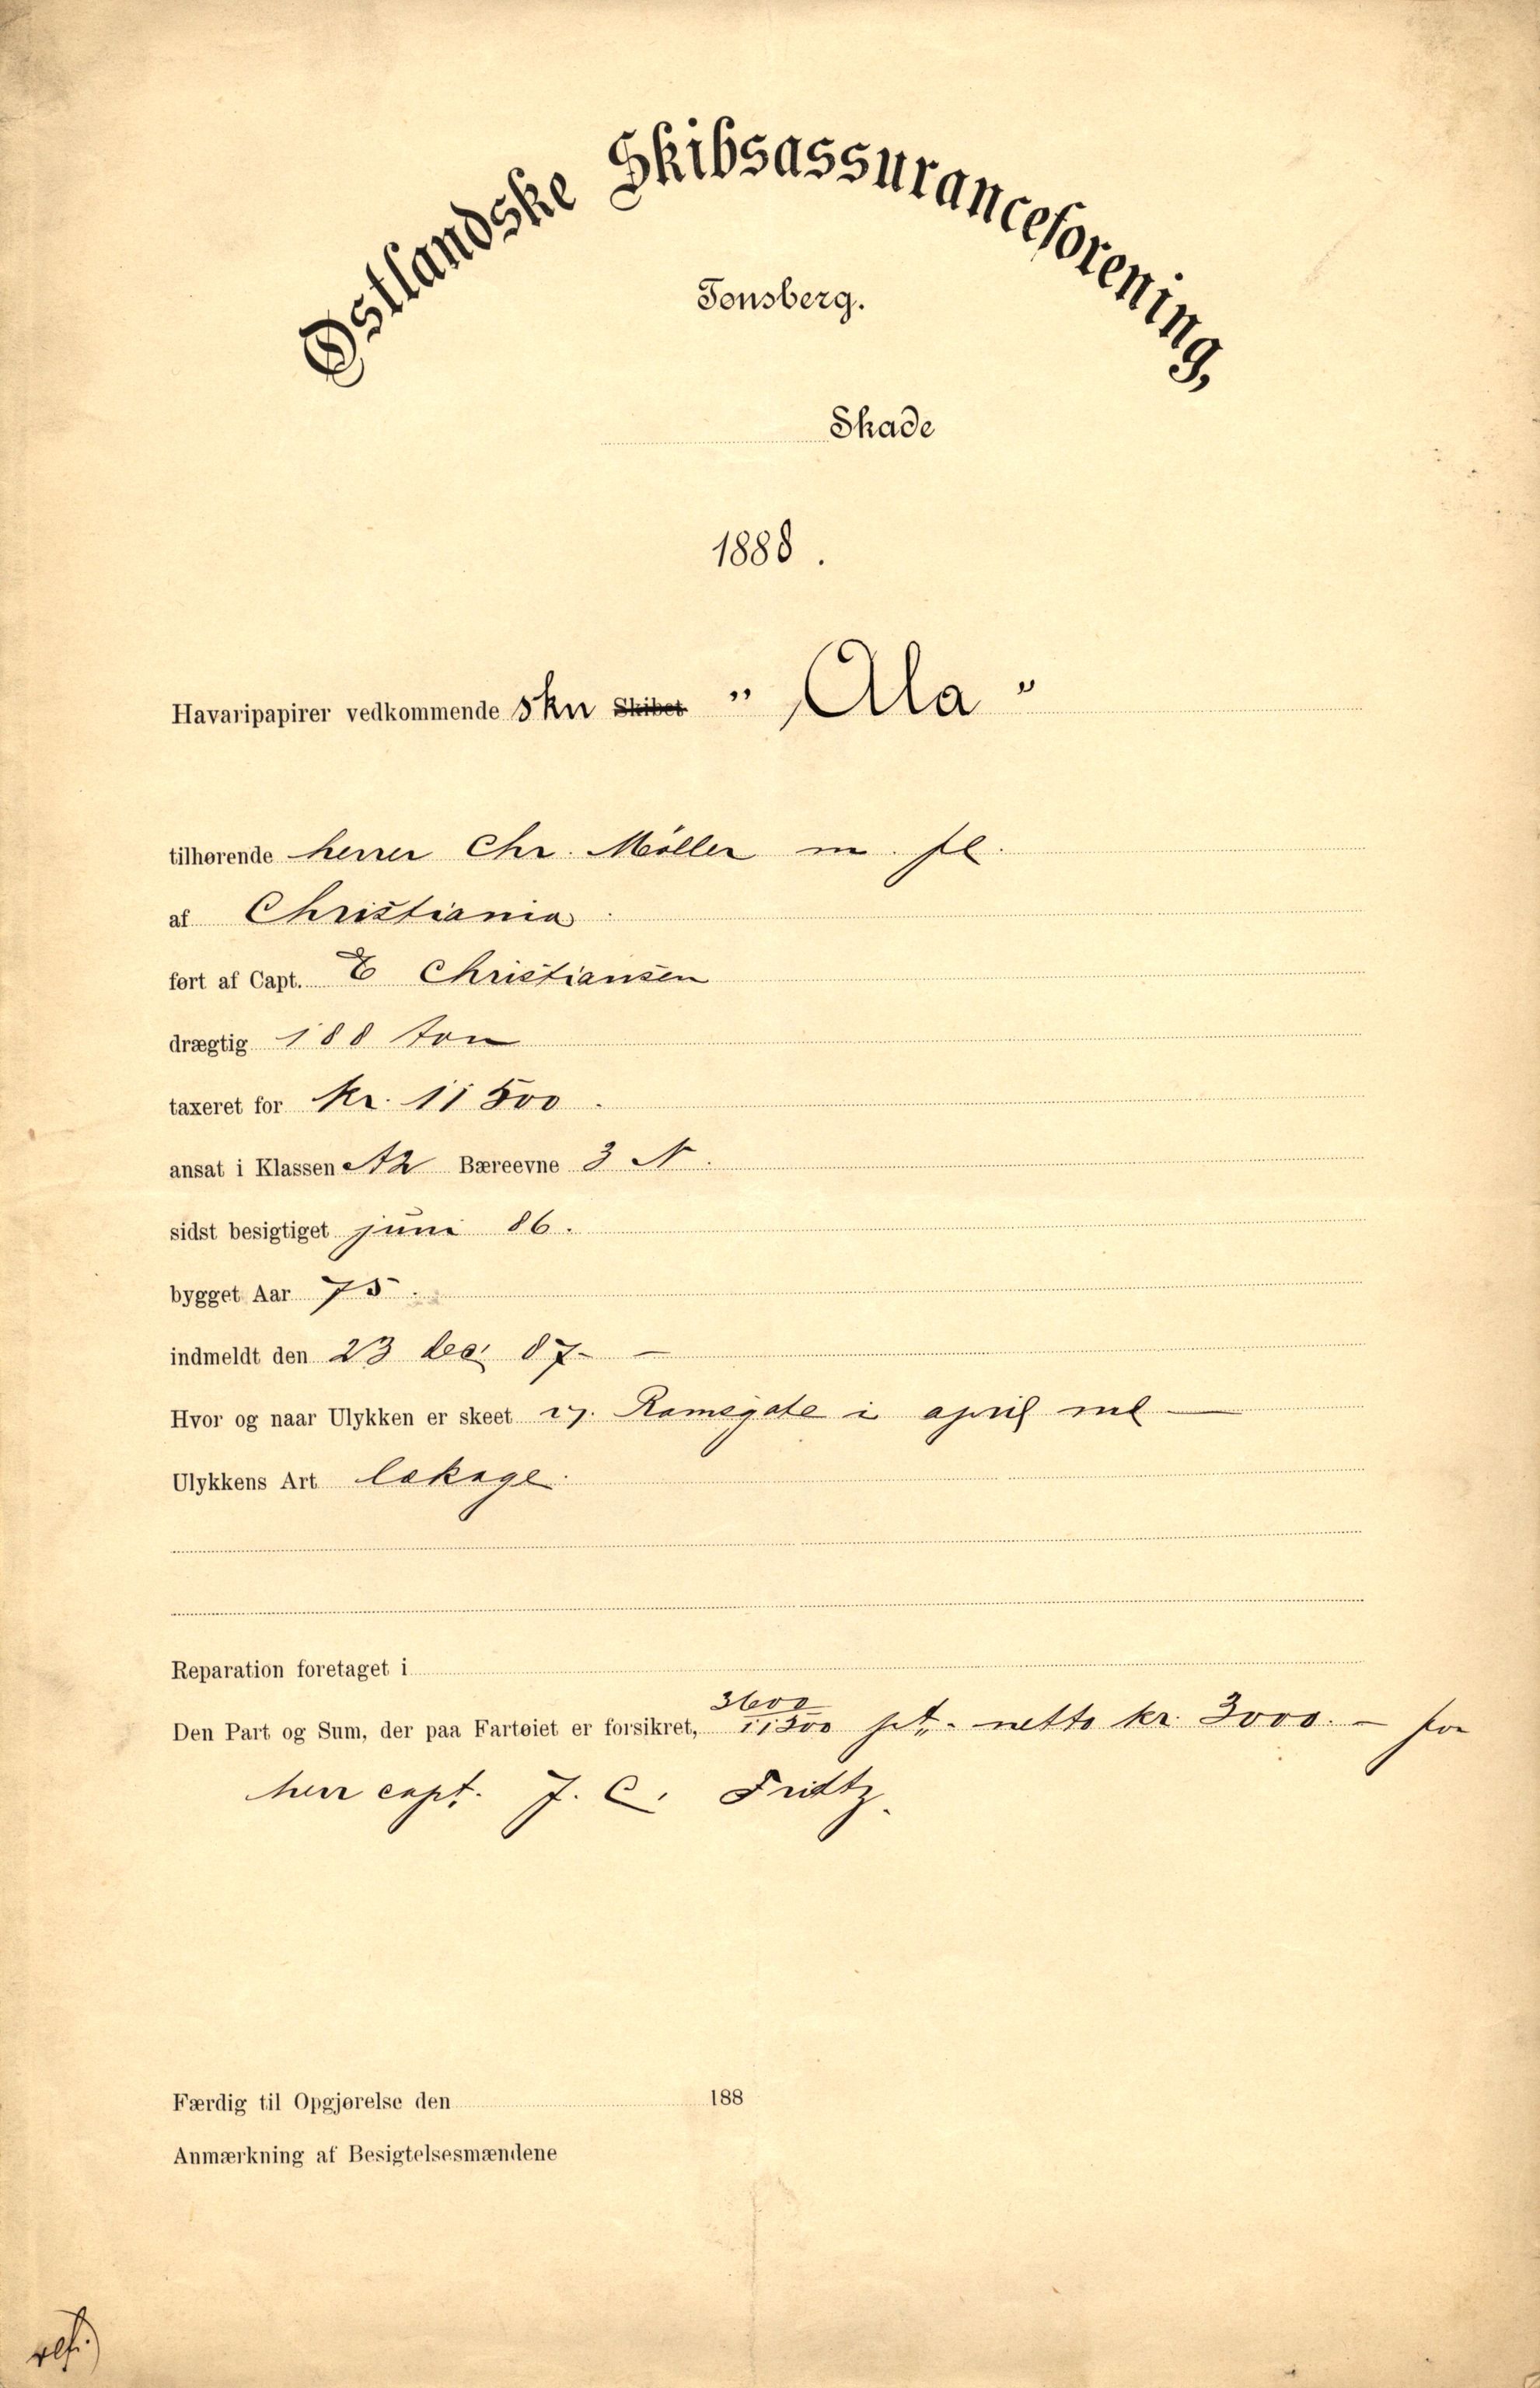 Østlandske Skibsassuranceforening,
Tønsberg.
Skade
1888.
Havaripapirer vedkommende skn Skibet "Ala"
tilhørende herrer Chr. Möller m. fl.
af Christiania
ført af Capt. E Christiansen
drægtig 188 ton
taxeret for Kr. 11500.
ansat i Klassen A2 Bæreevne 3 N.
sidst besigtiget juni 86.
bygget Aar 75.
indmeldt den 23 dec. 87. —
Hvor og naar Ulykken er skeet Ramsgate i april —
Ulykkens Art lækage.
Reparation foretaget i
Den Part og Sum, der paa Fartøiet er forsikret, 3600/11500 pt. netto kr. 3000. — for
herr capt. J. C. Frittz.
Færdig til Opgjørelse den 188
Anmærkning af Besigtelsesmændene